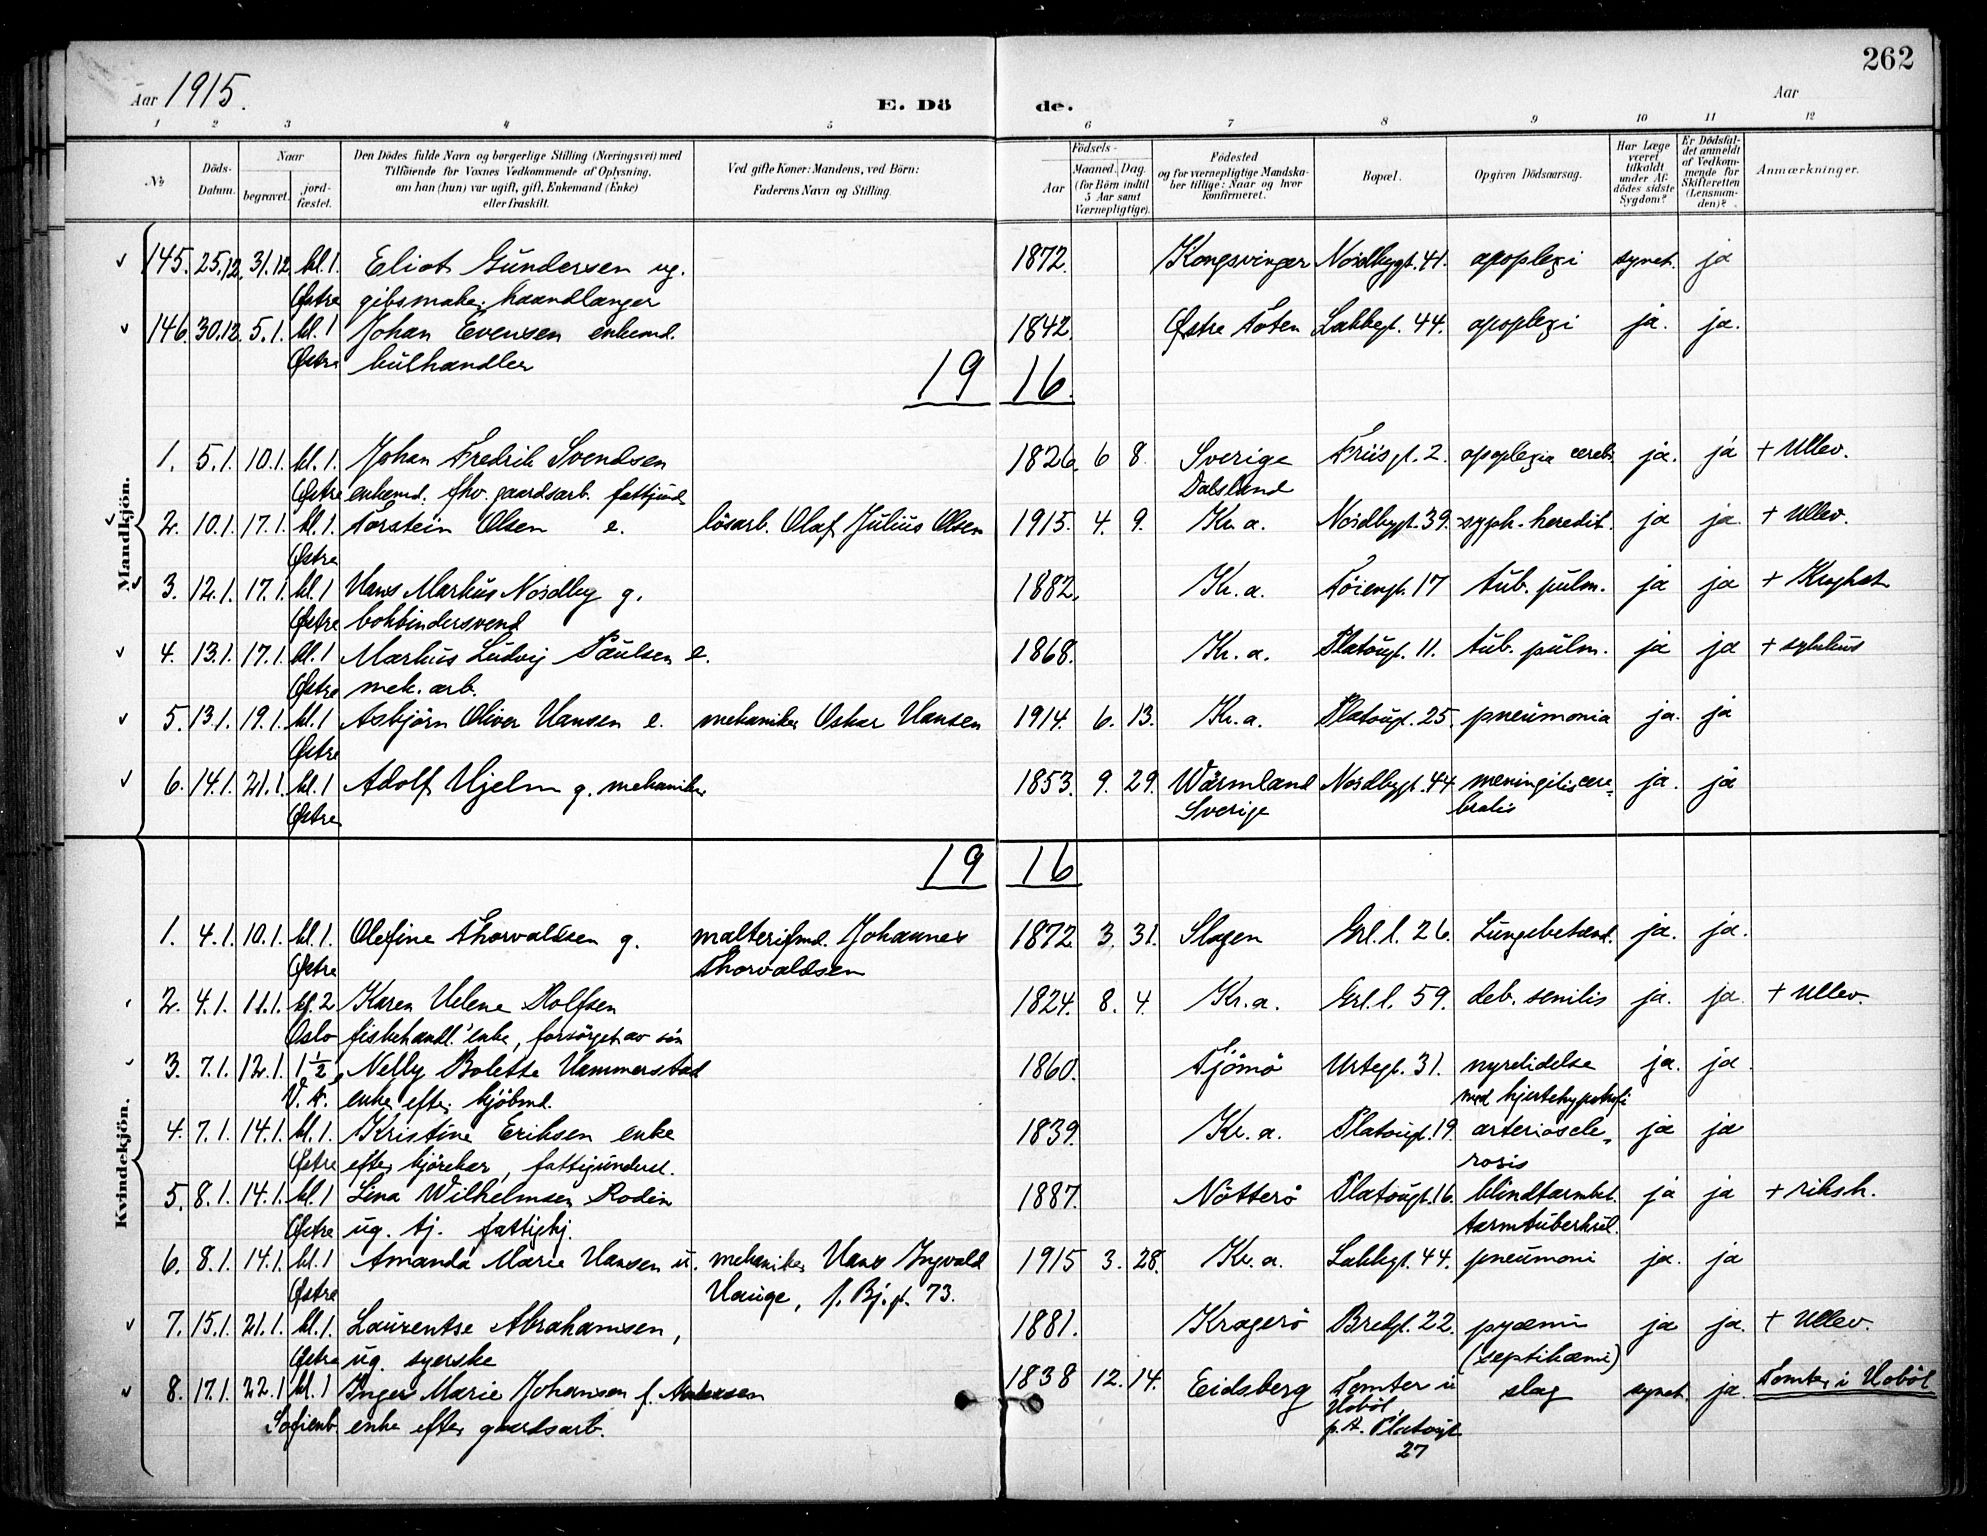 262
Aar 1915.
E. Dö de.
Aar
1 2 3 4 5 6 7 8 9 10 11 12
No
Döds-Datum.
Naar
begravet.
jord-fæstet.
Den Dödes fulde Navn og borgerlige Stilling (Næringsvei) med
Tilföiende for Voxnes Vedkommende af Oplysning,
om han (hun) var ugift, gift, Enkemand (Enke)
eller fraskilt.
Ved gifte Koner: Mandens, ved Börn:
Faderens Navn og Stilling.
Födsels-
Aar
Maaned. Dag.
(for Börn indtil
5 Aar samt
Værnepligtige).
Födested
og for værnepligtige Mandska-
ber tillige: Naar og hvor
konfirmeret.
Bopæl.
Opgiven Dödsaarsag.
Har Læge
været
tilkaldt
under Af-
dödes sidste
Sygdom?
Er Dödsfal-
det anmeldt
af Vedkom-
mende for
Skifteretten
(Lensman-
den)?
Anmærkninger.
Mandkjön.
145. 25.12. 31.12 kl. 1. Eliot Gundersen ug. 1872. Kongsvinger Nordbygt. 41. apoplexi synet. ja
Østre gibsmaker, haandlanger
146. 30.12. 5.1. kl. 1 Johan Evensen enkemd. 1842. Østre Toten Lakkegt. 44. apoplexi ja. ja.
Østre kulhandler
19 16.
1. 5.1. 10.1. kl. 1. Johan Fredrik Svendsen 1826. 6 8. Sverige Friisgt. 2. apoplexia cereb. ja. ja + Ullev.
Østre enkemd. fhv. gaardsarb. fattigund. Dalsland
2. 10.1. 17.1. kl. 1. Torstein Olsen e. lösarb. Olaf Julius Olsen 1915. 4. 9. Kr.a. Nordbygt. 39. syph. heredit. ja ja. + Ullev.
Østre
3. 12.1. 17.1. kl. 1 Hans Markus Nordby g. 1882. Kr.a. Töiengt. 17 tub. pulm. ja ja
Østre bokbindersvend
4. 13.1. 17.1. kl. 1 Markus Ludvig Paulsen e. 1868. Kr.a. Platougt. 11. tub. pulm. ja ja
Østre mek. arb.
5. 13.1. 19.1. kl. 1 Asbjörn Oliver Hansen e. mekaniker Oskar Hansen 1914. 6. 13. Kr.a. Platougt. 25. pneumonia ja. ja
Østre
6. 14.1. 21.1. kl. 1 Adolf Hjelm g. mekaniker 1853. 9. 29. Wärmland Nordbygt. 44 meningitis cere-
Østre Sverige bralis ja. ja
Kvindekjön.
19 16
1. 4.1. 10.1. kl. 1. Olefine Thorvaldsen g. malterifmd. Johannes 1872. 3. 31. Slagen Grl.l. 26. Lungebetænd. ja. ja.
Østre Thorvaldsen
2. 4.1. 11.1. kl. 2 Karen Helene Rolfsen 1824. 8. 4. Kr.a. Grl.l. 59. deb. senilis ja. ja. + Ullev.
Oslo fiskehandl. enke, forsörget av sön
3. 7.1. 12.1. 1 1/2 Nelly Bolette Hammerstad 1860. Tjömö Urtegt. 31. nyrelidelse ja. ja.
V. A. enke efter kjöbmd. med hjertehypertrofi
4. 7.1. 14.1. kl. 1. Kristine Eriksen enke 1839. Kr.a. Platougt. 19. arterioscle- ja ja
Østre efter kjörekar, fattigunderst. rosis
5. 8.1. 14.1. kl. 1 Lina Wilhelmsen Rodin 1887. Nötterö Platougt. 16. blindtarmbet. ja ja + riksh.
Østre ug. tj. fattighj. tarmtuberkul.
6. 8.1. 14.1. kl. 1 Amanda Marie Hansen u. mekaniker Hans Ingvald 1915 3. 28. Kr.a. Lakkegt. 44. pneumoni ja. ja
Østre Hauge, f. Bj.gt. 73.
7. 15.1. 21.1. kl. 1. Laurentse Abrahamsen, 1881. Kragerö Bredgt. 22. pyæmi ja ja. + Ullev.
Østre ug. syerske (septikæmi)
8. 17.1. 22.1 kl. 1 Inger Marie Johansen f. 1838 12. 14. Eidsberg Tomter i slag synet. ja. Tomter i Hoböl
Sofienb. enke efter gaardsarb. Hoböl,
p.t. Platougt.
27